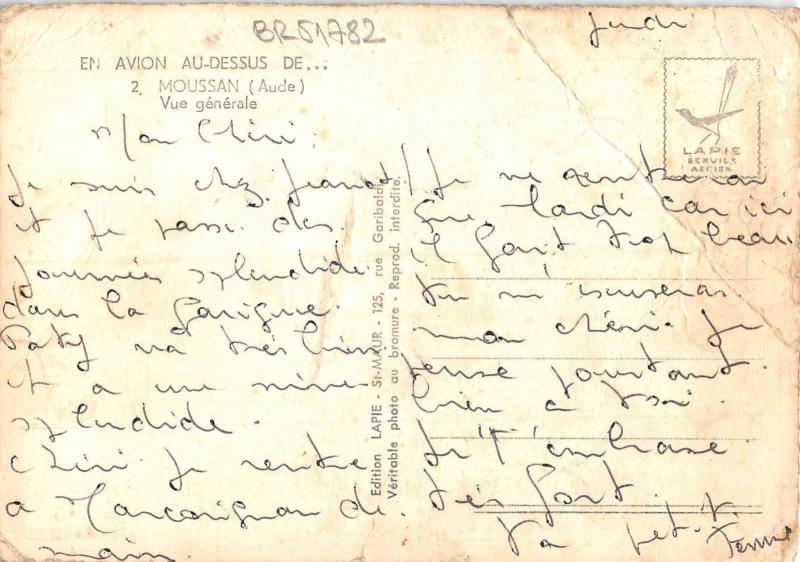 BR51782
jeudi
EN AVION AU-DESSUS DE...
2. MOUSSAN (Aude)
Vue générale
LAPIE
SERVICE
AERIEN
Mon Chéri.
Je suis chez Jeanot
et je passe des
journées splendide
dans la Garigue.
Paty va très bien
et a une mine
splendide.
Chéri je rentre
a Marcorignan de
main.
Edition LAPIE - St-MAUR - 125, rue Garibaldi
Véritable photo au bromure - Reprod. interdite.
Je ne rentrerai
que Mardi car ici
il fait trop beau
tu m'excuseras
mon chéri. Je
pense pourtant
bien a toi.
Je t'embrasse
très fort.
Ta petite
femme